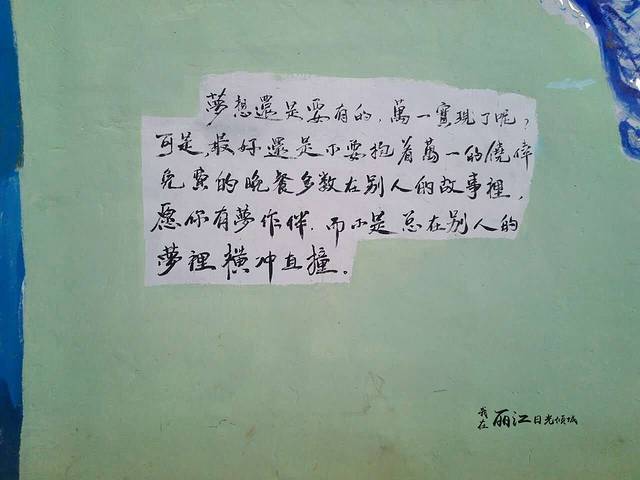 夢想還是要有的，萬一實現了呢？
可是，最好還是不要抱着萬一的僥倖
免費的晚餐多数在别人的故事裡，
愿你有夢作伴．而不是总在别人的
夢裡橫冲直撞。
我在丽江日光傾城